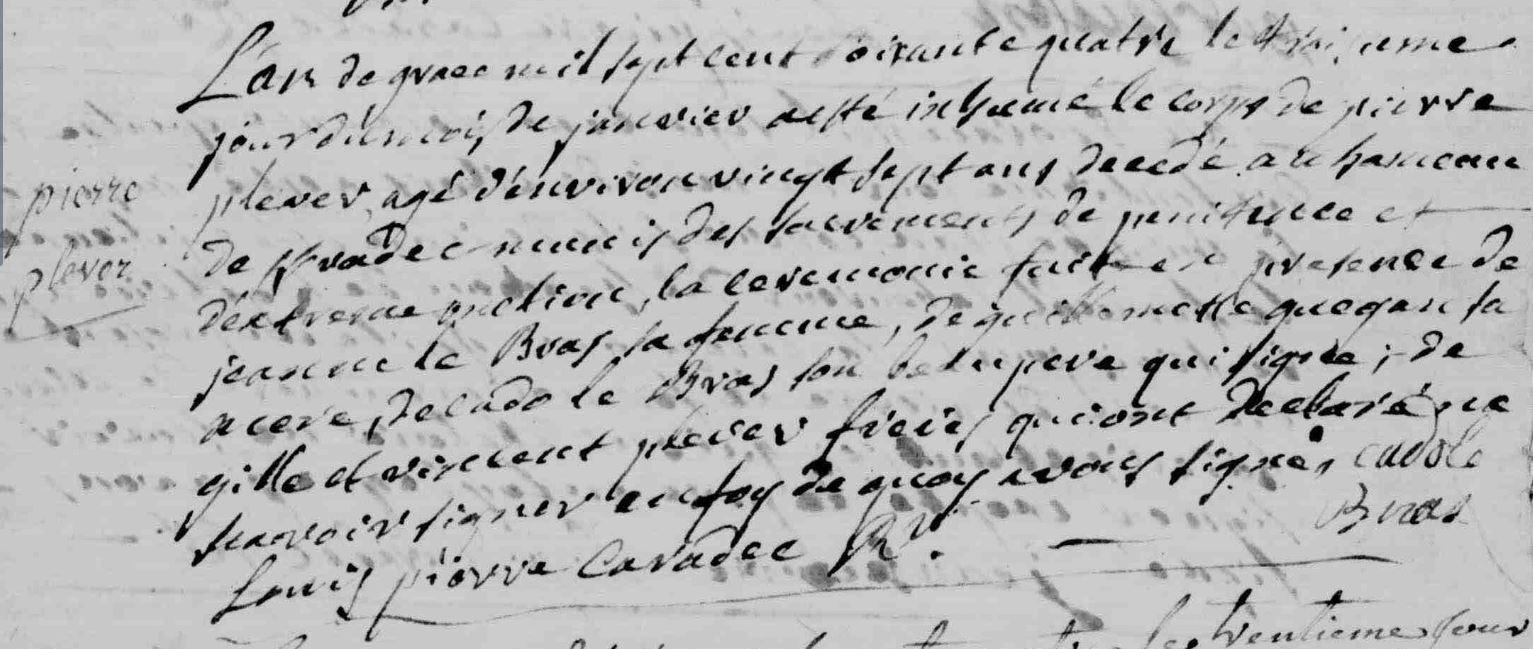 L'an de grace mil sept cent soixante quatre le treizieme
jour du mois de janvier a esté inhumé le corps de pierre
plever, agé d'environ vingt sept ans decedé au hameau
pierre
plever
de munis des sacrements de penitence et
d'extreme onction, la ceremonie faite en presence de
jeanne le Bras sa femme, de guillemette guegan sa
mere, de cado le Bras son beaupere qui signe; de
gille et vincent plever freres qui ont declaré ne
scavoir signer en foy de quoy avons signés cado le
Bras
Louis pierre Caradec Rr.
trentieme jour